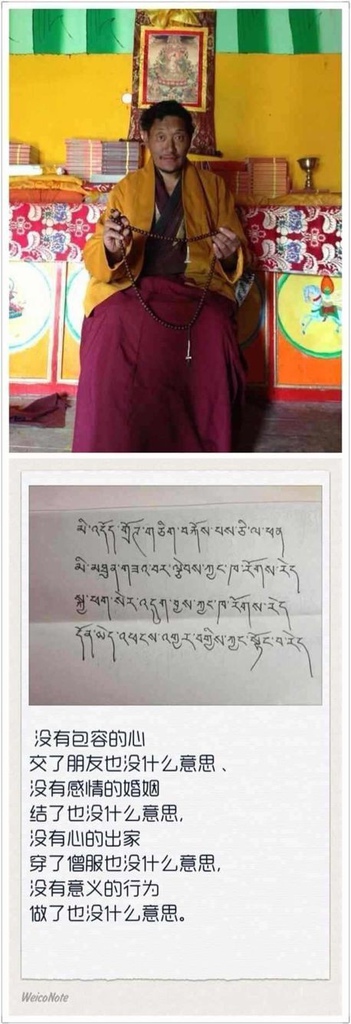 མི་འདོད་ གཅིག་ པས་ཅི་ལ་ཕན
མི་མཐུན་གཟའ་ ཀྱང་ཁ་རོགས་རེད
ཀྱང་ཁ་རོགས་རེད
དོན་མེད་ བགྱིས་ཀྱང་སྟོང་བ་རེད
没有包容的心
交了朋友也没什么意思、
没有感情的婚姻
结了也没什么意思,
没有心的出家
穿了僧服也没什么意思,
没有意义的行为
做了也没什么意思。
WeicoNote